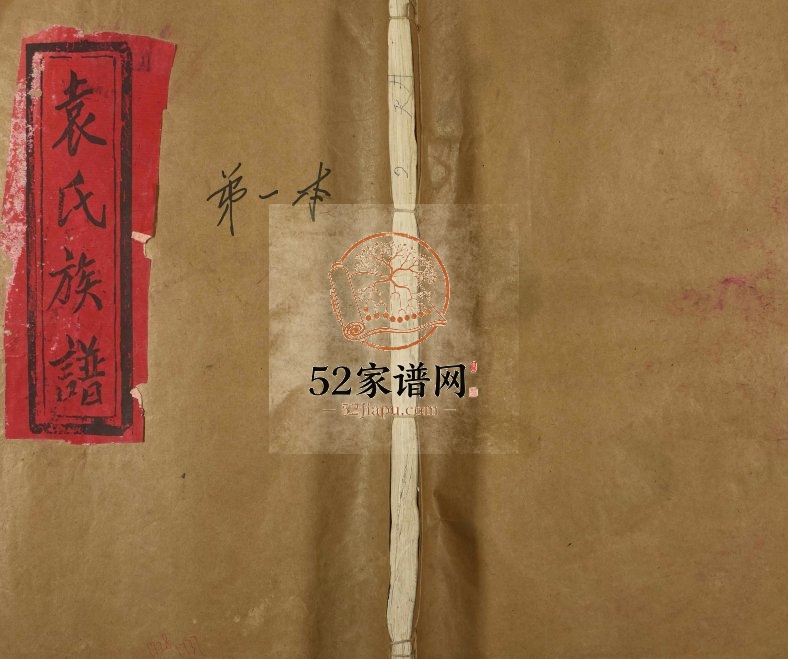 袁氏族譜
第一本
52家谱网
52jiapu.com